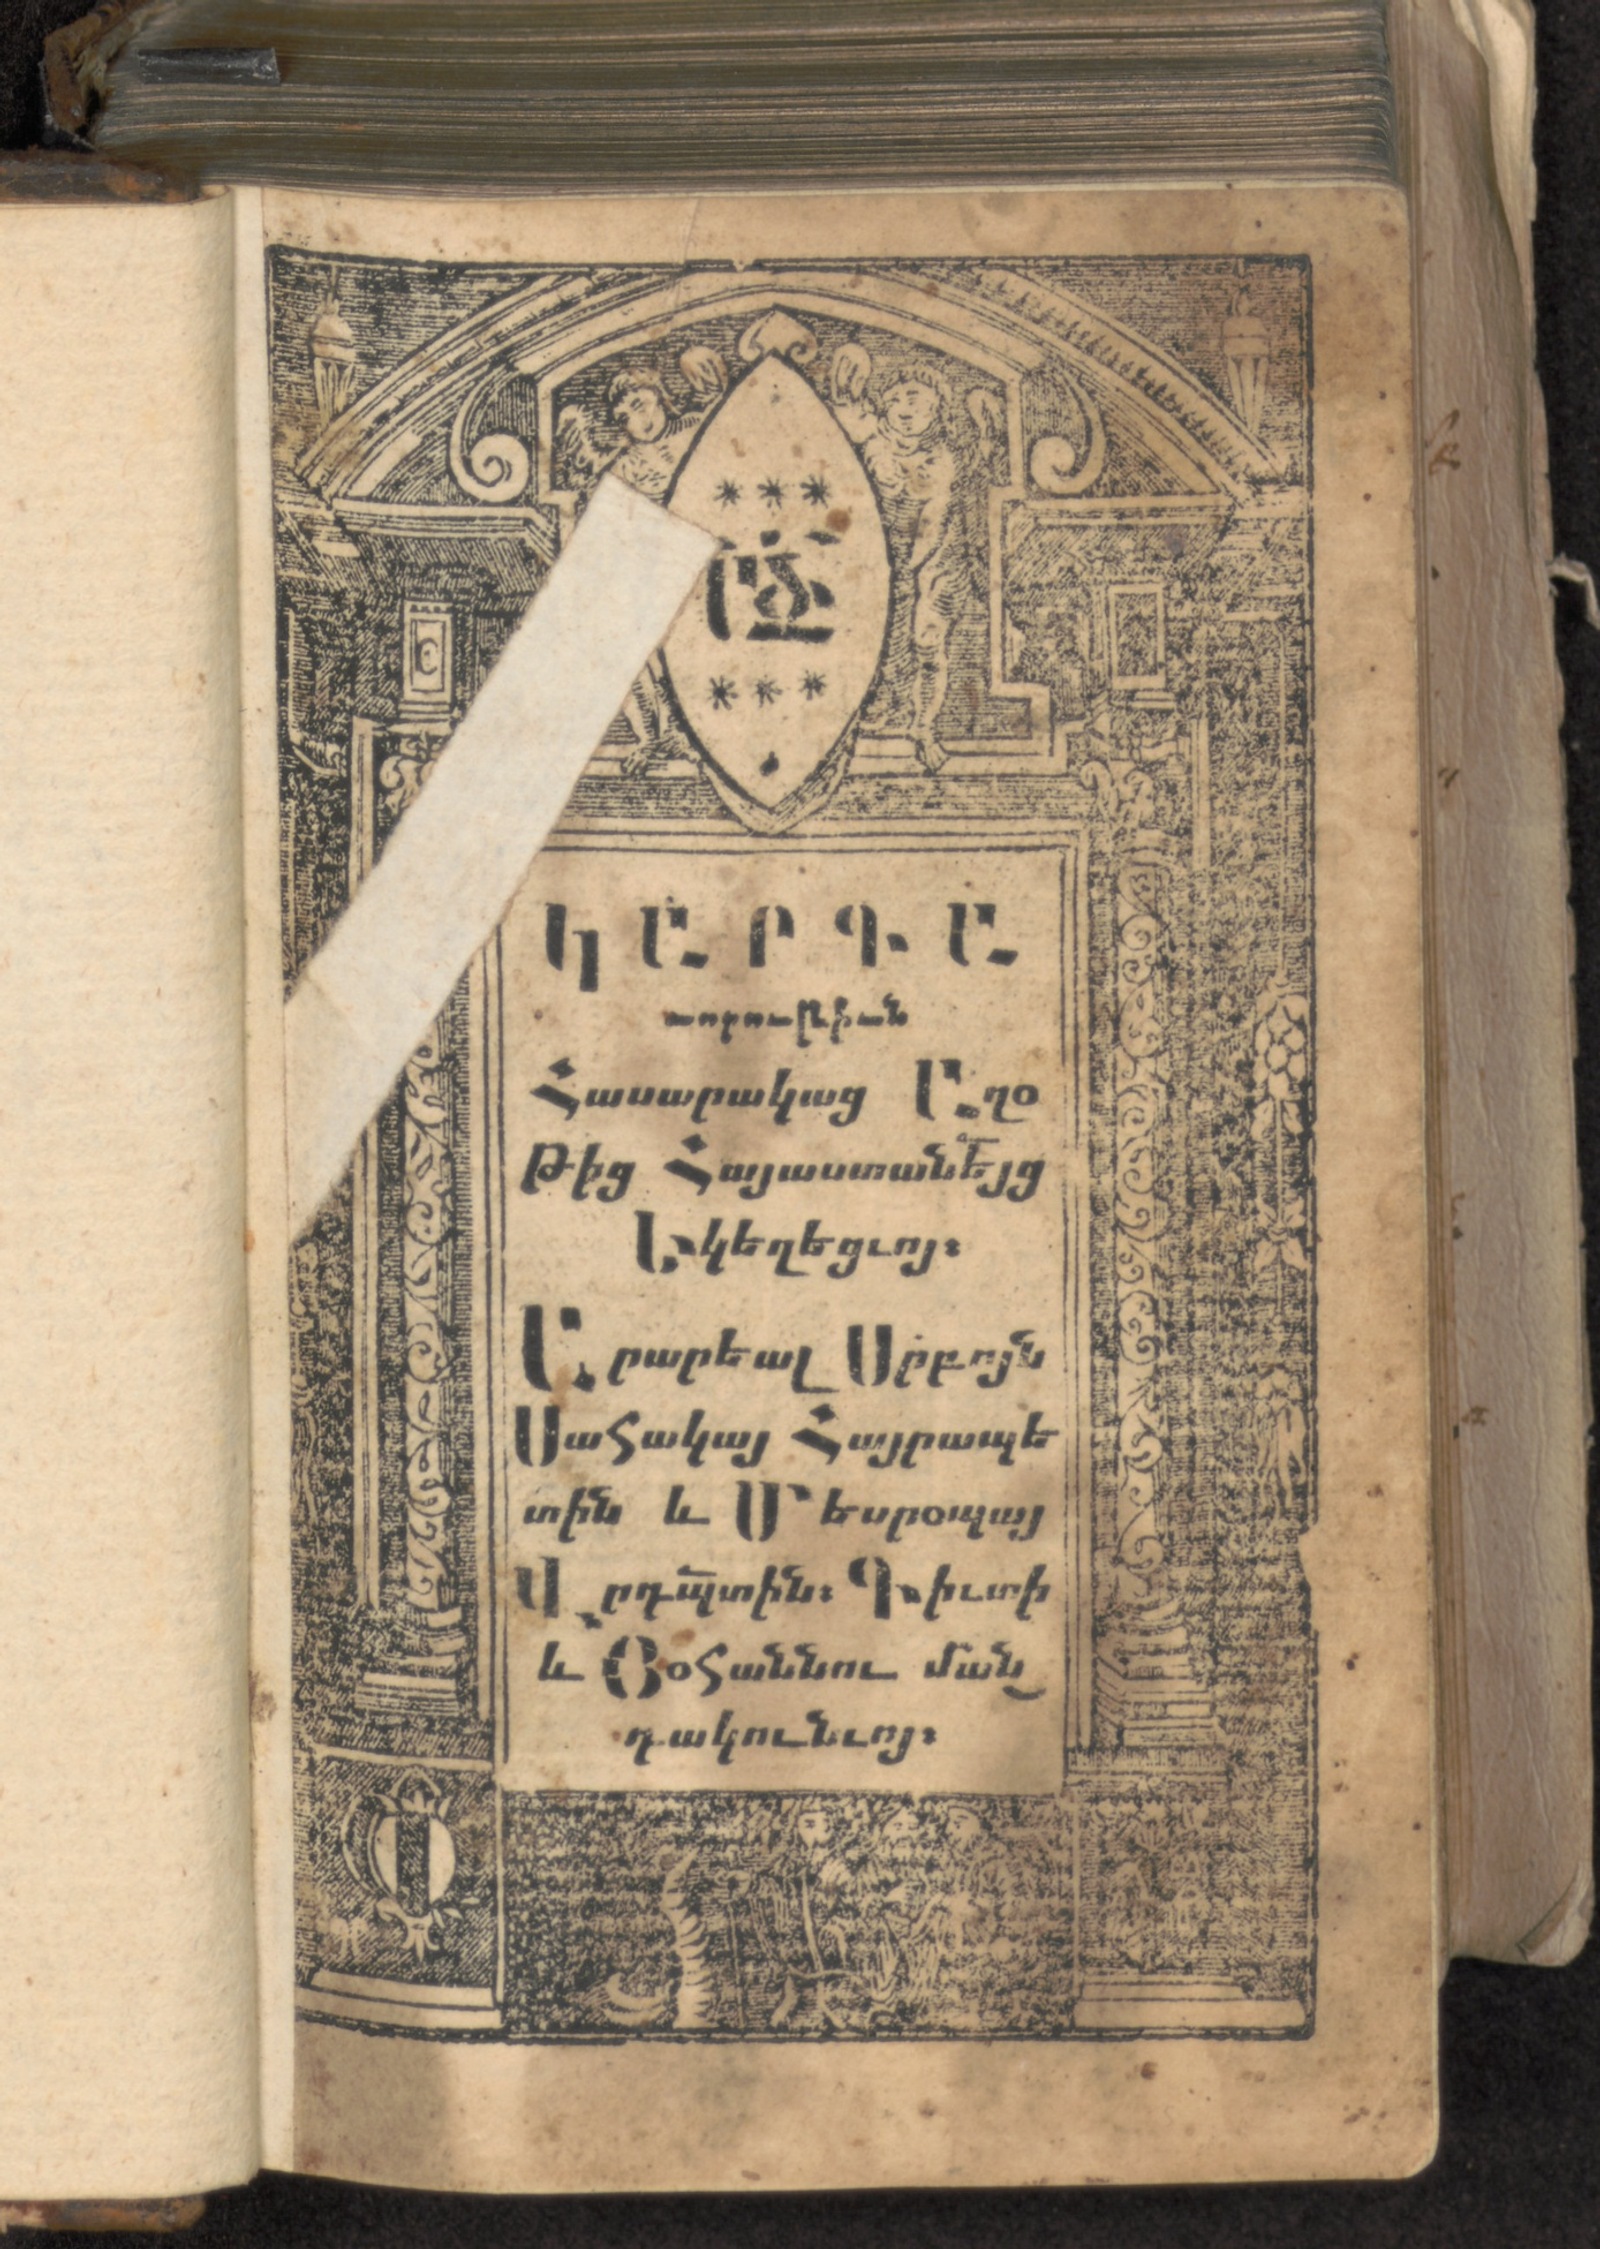 * * *
* * *
ԿԱՐԳԱ
ւորութիւն
Հասարակաց Աղօ
թից Հայաստանեայց
Եկեղեցւոյ։
Արարեալ Սրբոյն
Սահակայ Հայրապե
տին և Մեսրօպայ
Վրդպտին։ Գիւտի
և Յօհաննու ման
դակունւոյ։